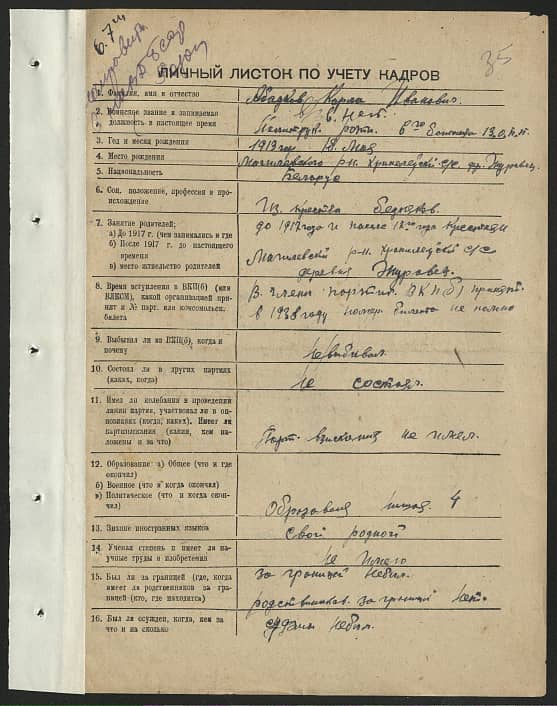 35
ЛИЧНЫЙ ЛИСТОК ПО УЧЕТУ КАДРОВ
1. Фамилия, имя и отчество
Абадков Кирла Иванович.
2. Воинское звание и занимаемая
должность в настоящее время
Политрук роты. 6ого Батальона
3. Год и месяц рождения
1919 год Мая
4. Место рождения
Могилевского р-н. с/с. др. Журавец.
5. Национальность
Беларус
6. Соц. положение, профессия и происхождение
Из крестьян Бедняков.
7. Занятие родителей:
а) До 1917 г. (чем занимались и где
б) После 1917 г. до настоящего
времени
в) место жительство родителей
до 1917 года и после 17го года крестьяни
Могилевский р-н. с/с
деревня Журавец.
8. Время вступления в ВКП(б) (или
ВЛКСМ), какой организацией принят и № парт. или комсомольск.
билета
В члены партии ВКП(б) принят
в 1938 году номер билета не помню
9. Выбывал ли из ВКП(б), когда и
почему
Невыбивал.
10. Состоял ли в других партиях
(каких, когда)
Не состоял.
11. Имел ли колебания в проведении
линии партии, участвовал ли в оппозициях (когда, каких). Имеет ли
партвзыскания (какия, кем наложены и за что)
Парт. взискания не имел.
12. Образование: а) Общее (что и где
окончил)
б) Военное (что и когда окончил)
в) Политическое (что и когда окончил)
Образования низшая. 4
13. Знание иностранных языков
свой родной
14. Ученая степень и имеет ли научные труды и изобретения
Не имею
15. Был ли за границей (где, когда
имеет ли родственников за границей (кто, где находится)
За границей Небыл.
родственников за границей Нет.
16. Был ли осужден, когда, кем за
что и на сколько
Небыл.